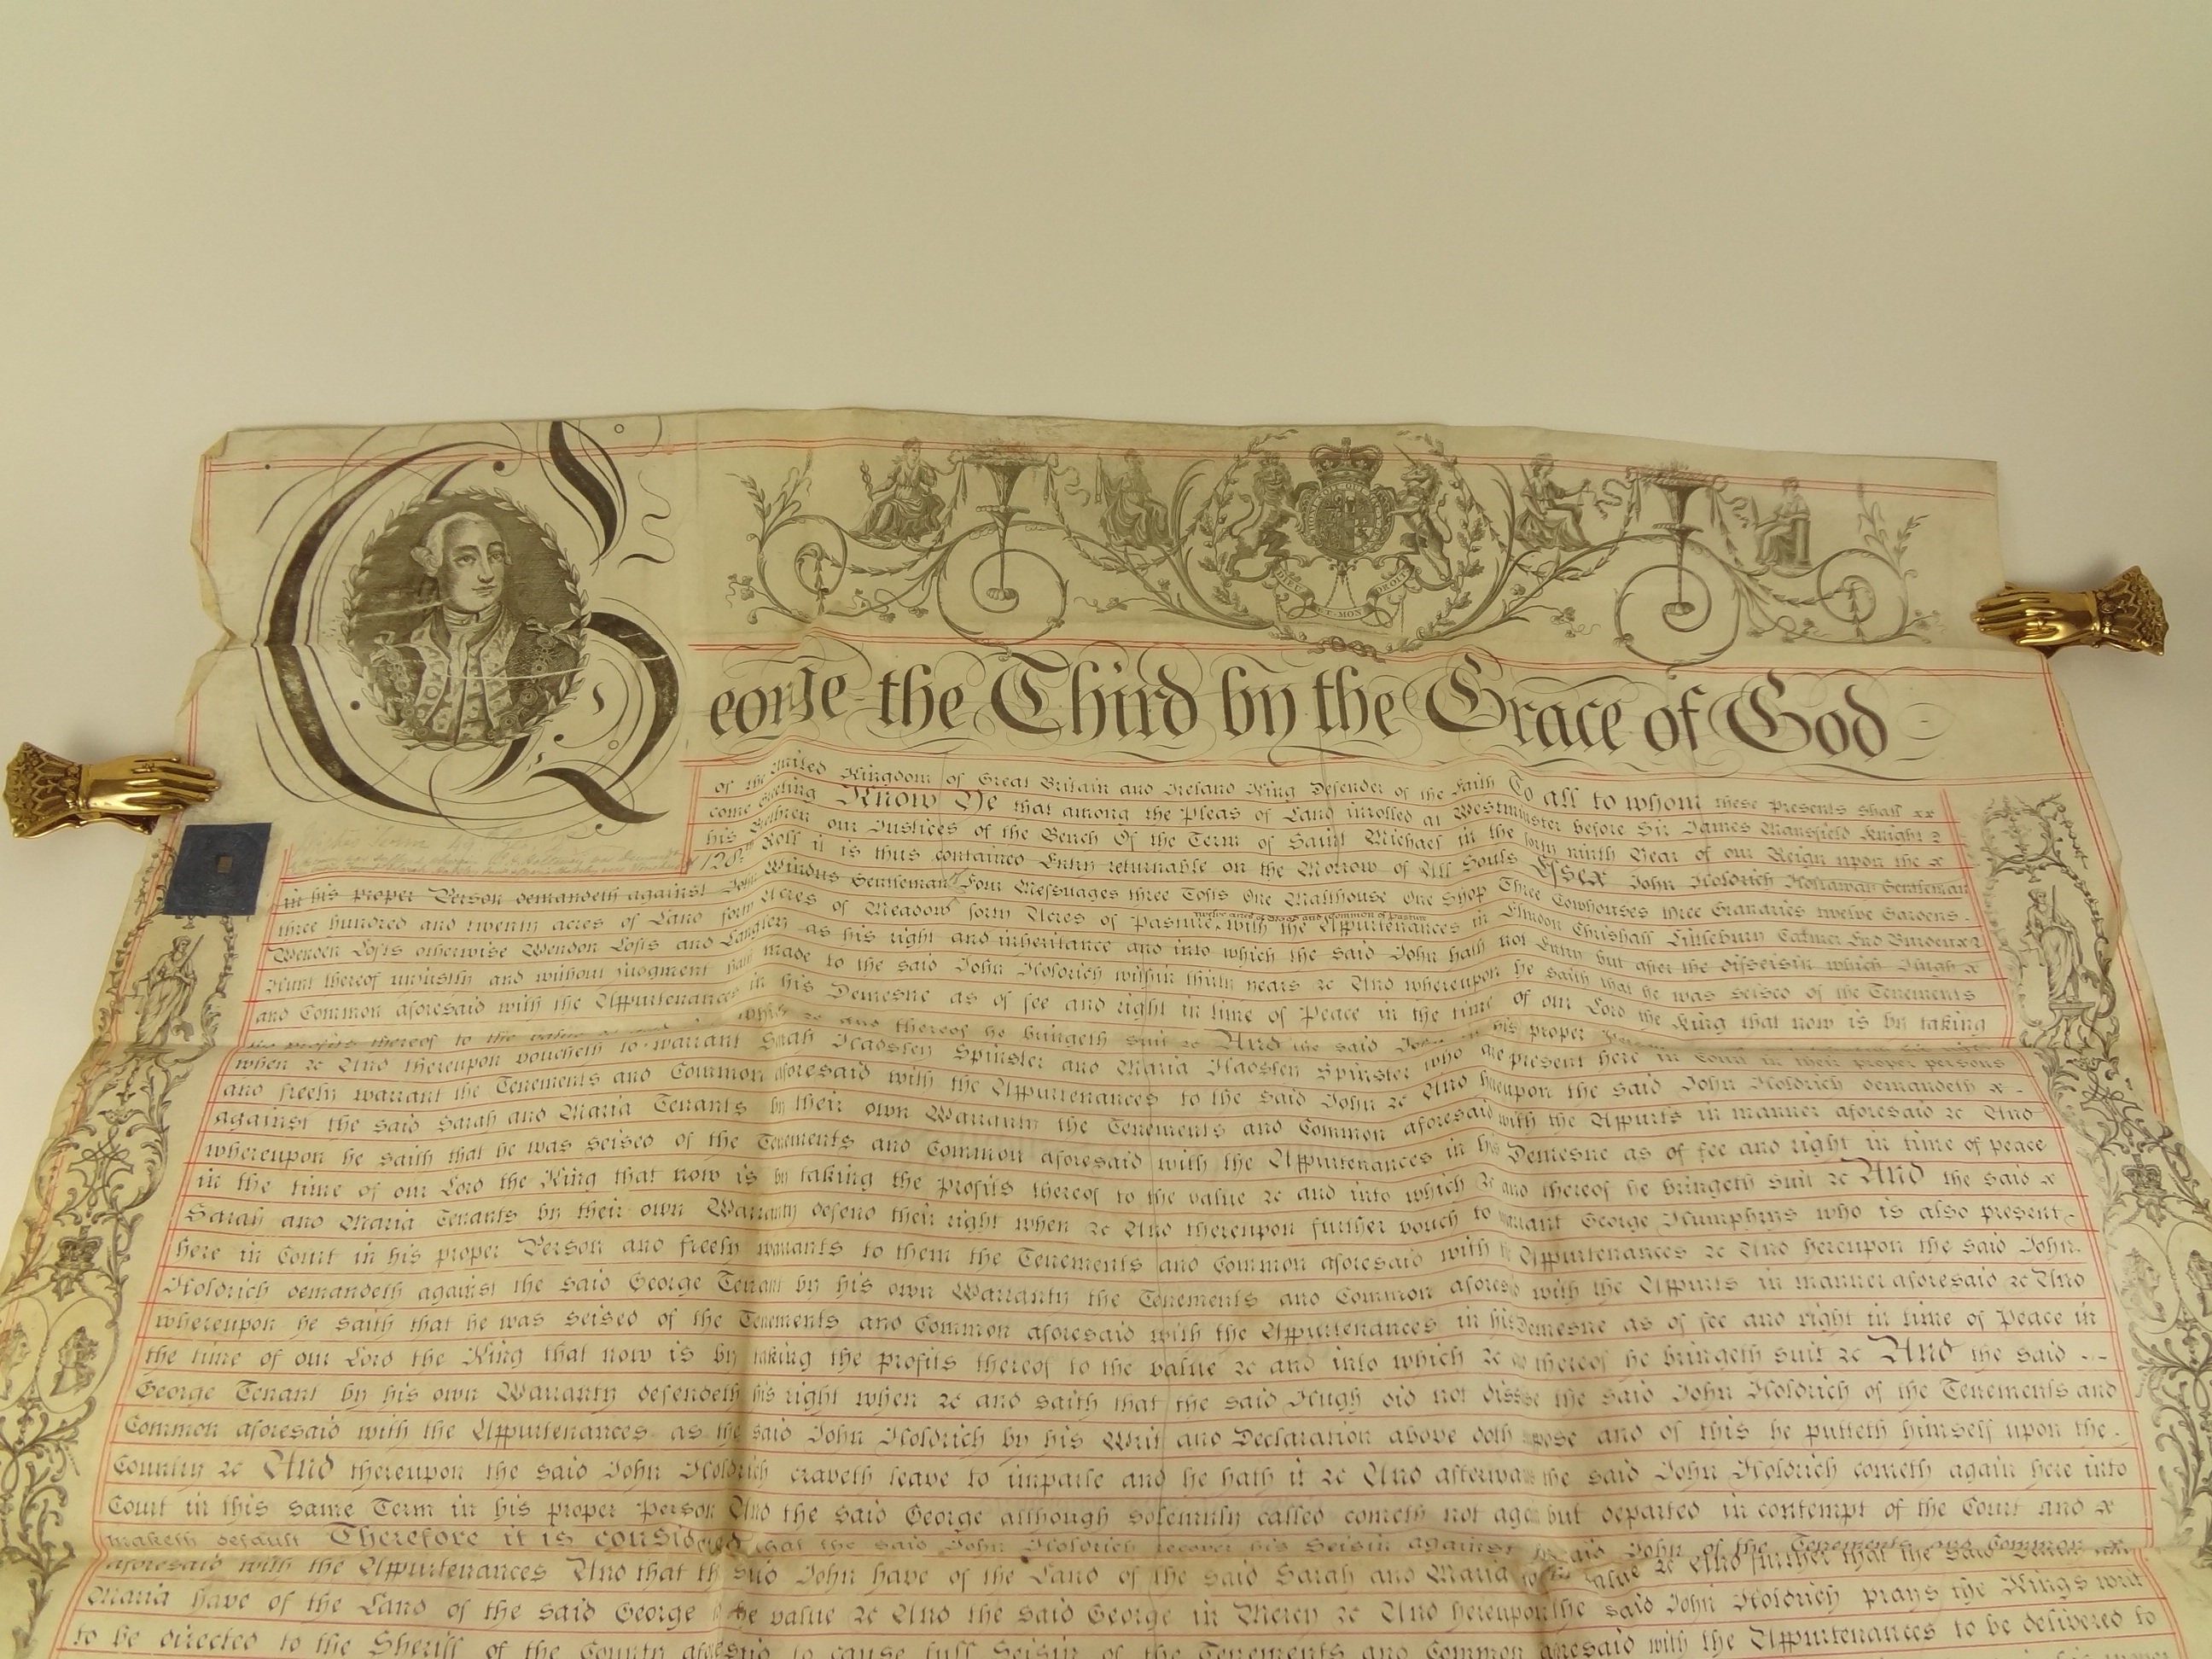 DIEU ET MON DROIT
George the Third by the Grace of God
of the United Kingdom of Great Britain and Ireland King Defender of the Faith To all to whom these presents shall
come Greeting Know Ye that among the Pleas of Land inrolled at Westminster before Sir James Mansfield Knight &
his Brethren our Justices of the Bench Of the Term of Saint Michael in the forty ninth Year of our Reign upon the
128th Roll it is thus contained Entry returnable on the Morrow of All Souls Essex John Holdrich Hollaway Gentleman
in his proper Person demandeth against John Windus Gentleman Four Messuages three Tofts One Malthouse One Shop Three Cowhouses three Granaries twelve Gardens
three hundred and twenty acres of Land forty Acres of Meadow forty Acres of Pasture twelve acres of Wood and Common of Pasture with the Appurtenances in Elmdon Chrishall Littlebury Catmer End
Wenden Lofts otherwise Wendon Lofts and Langley as his right and inheritance and into which the said John hath not Entry but after the disseisin which Hugh
Hunt thereof unjustly and without judgment hath made to the said John Holdrich within thirty years &c And whereupon he saith that he was seised of the Tenements
and Common aforesaid with the Appurtenances in his Demesne as of fee and right in time of Peace in the time of our Lord the King that now is by taking
the profits thereof to the value &c and into which &c and thereof he bringeth suit &c And the said John in his proper
when &c And thereupon voucheth to warrant Sarah Hadsley Spinster and Maria Hadsley Spinster who are present here in Court in their proper persons
and freely warrant the Tenements and Common aforesaid with the Appurtenances to the said John &c And hereupon the said John Holdrich demandeth
against the said Sarah and Maria Tenants by their own Warranty the Tenements and Common aforesaid with the Appurts in manner aforesaid &c And
whereupon he saith that he was seised of the Tenements and Common aforesaid with the Appurtenances in his Demesne as of fee and right in time of peace
in the time of our Lord the King that now is by taking the profits thereof to the value &c and into which &c and thereof he bringeth suit &c And the said
Sarah and Maria Tenants by their own Warranty defend their right when &c And thereupon further vouch to warrant George Humphrys who is also present
here in Court in his proper Person and freely warrants to them the Tenements and Common aforesaid with the Appurtenances &c And hereupon the said John
Holdrich demandeth against the said George Tenant by his own Warranty the Tenements and Common aforesaid with the Appurts in manner aforesaid &c And
whereupon he saith that he was seised of the Tenements and Common aforesaid with the Appurtenances in his Demesne as of fee and right in time of Peace in
the time of our Lord the King that now is by taking the profits thereof to the value &c and into which &c and thereof he bringeth suit &c And the said
George Tenant by his own Warranty defendeth his right when &c and saith that the said Hugh did not disseise the said John Holdrich of the Tenements and
Common aforesaid with the Appurtenances as the said John Holdrich by his Writ and Declaration above doth suppose and of this he putteth himself upon the
Country &c And thereupon the said John Holdrich craveth leave to imparle and he hath it &c And afterwards the said John Holdrich cometh again here into
Court in this same Term in his proper Person And the said George although solemnly called cometh not again but departed in contempt of the Court and
maketh default Therefore it is considered that the said John Holdrich recover his Seisin against the said John of the Tenements and Common
aforesaid with the Appurtenances And that the said John have of the Land of the said Sarah and Maria to the value &c And further that the said Sarah and
Maria have of the Land of the said George to the value &c And the said George in Mercy &c And hereupon the said John Holdrich prays the Kings writ
to be directed to the Sheriff of the County aforesaid to cause full Seisin of the Tenements and Common aforesaid with the Appurtenances to be delivered to